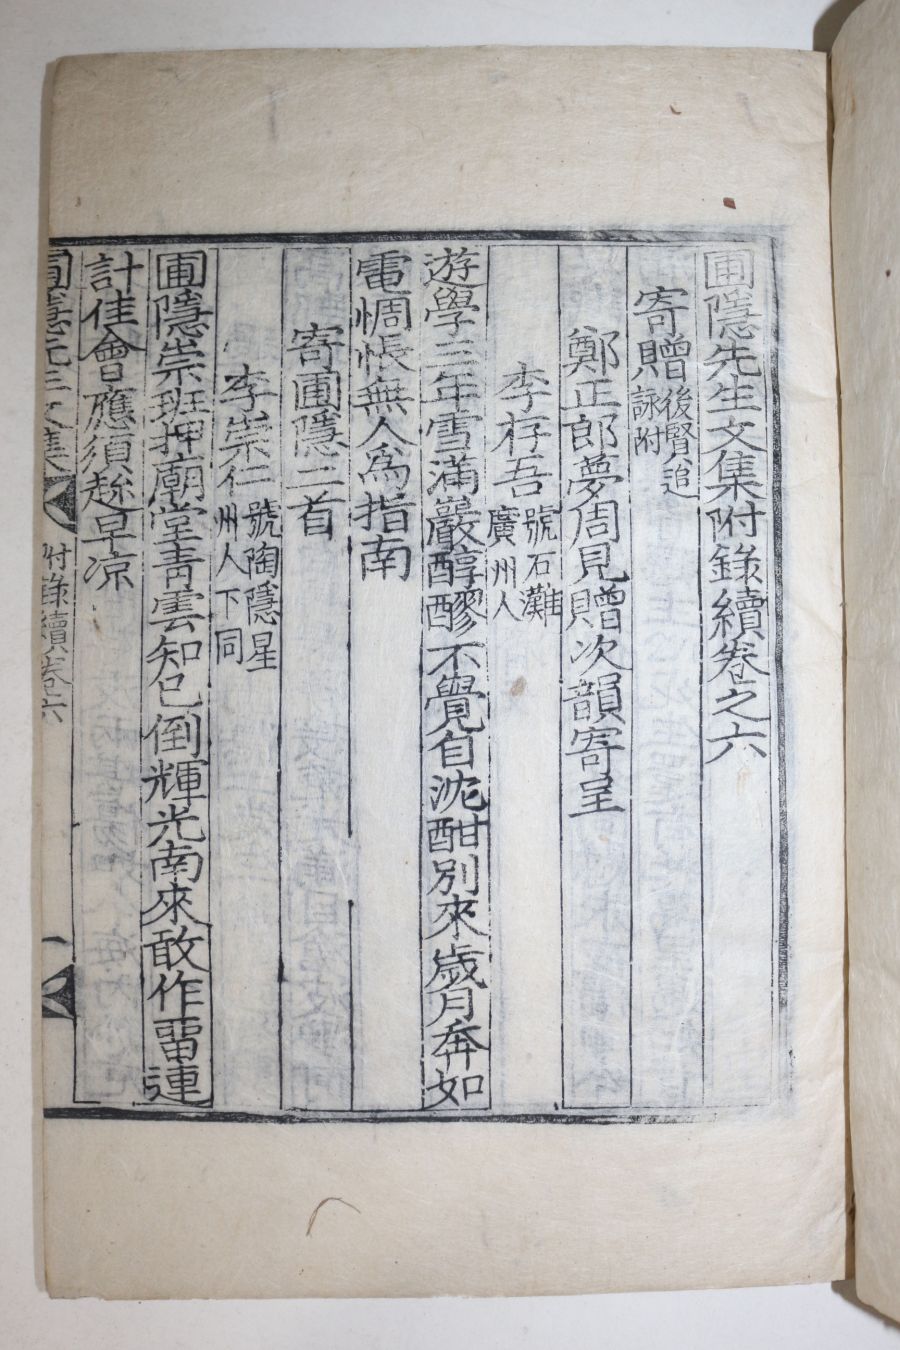 圃隱先生文集附錄續卷之六
寄贈 後賢追
詠附
鄭正郎夢周見贈次韻寄呈
李存吾 號石灘
廣州人
遊學三年雪滿巖醇醪不覺自沈酣別來歲月奔如
電惆悵無人爲指南
寄圃隱二首
李崇仁 號陶隱星
州人下同
圃隱崇班押廟堂靑雲知己倒輝光南來敢作畱連
計佳會應須趂早凉
圃隱先生文集 附錄續卷六 一